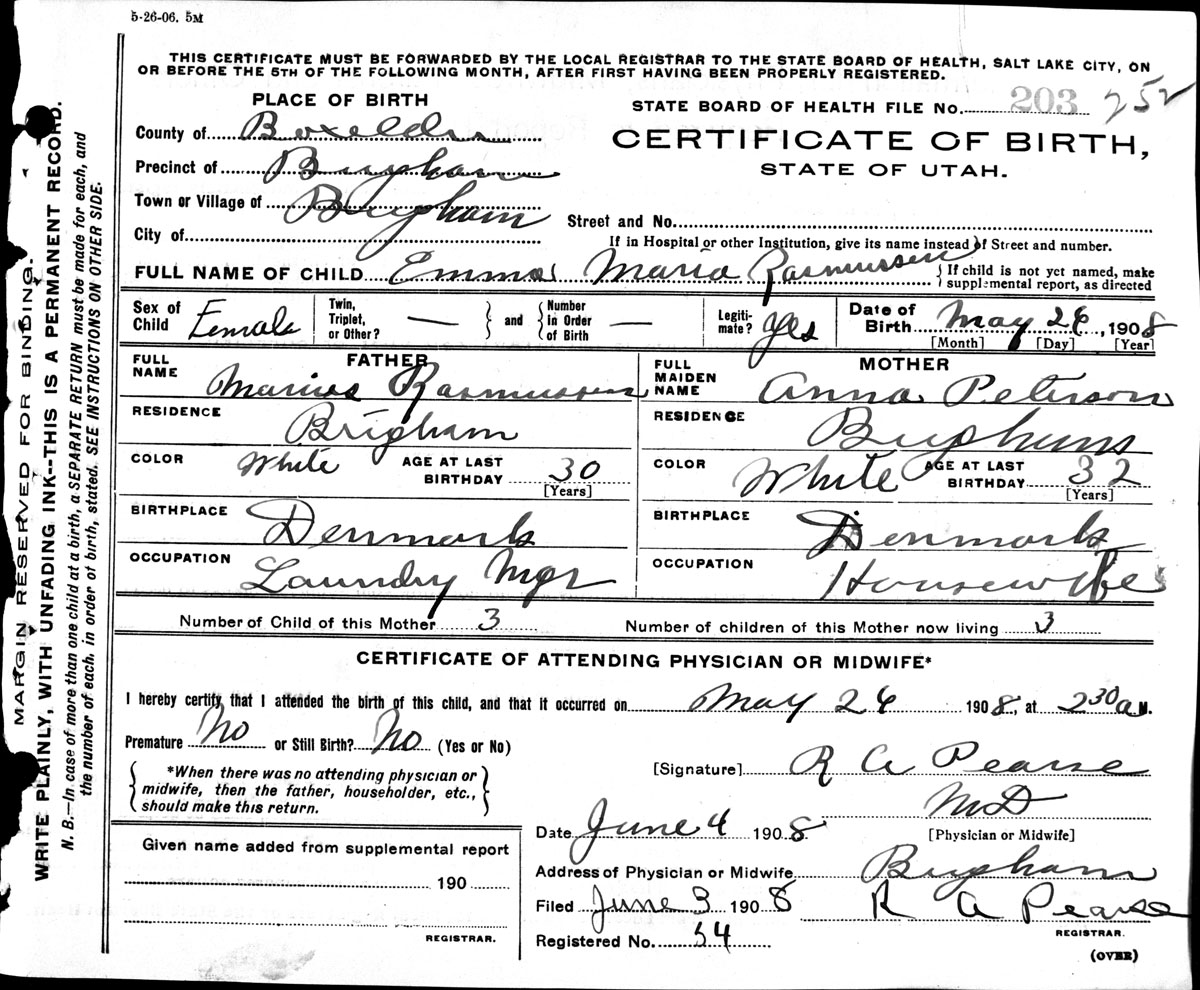 5-26-06. 5M
THIS CERTIFICATE MUST BE FORWARDED BY THE LOCAL REGISTRAR TO THE STATE BOARD OF HEALTH, SALT LAKE CITY, ON
OR BEFORE THE 5TH OF THE FOLLOWING MONTH, AFTER FIRST HAVING BEEN PROPERLY REGISTERED.
PLACE OF BIRTH
County of Boxelder
Precinct of Brigham
Town or Village of Brigham
City of
STATE BOARD OF HEALTH FILE No. 203 252
CERTIFICATE OF BIRTH,
STATE OF UTAH.
Street and No.
If in Hospital or other Institution, give its name instead of Street and number.
FULL NAME OF CHILD Emma Maria Rasmussen {If child is not yet named, make
supplemental report, as directed
Sex of Child Female
Twin, Triplet, or Other? — } and { Number in Order of Birth —
Legiti-mate? Yes
Date of Birth May 26, 1908
[Month] [Day] [Year]
FATHER
FULL NAME Marius Rasmussen
RESIDENCE Brigham
COLOR White AGE AT LAST BIRTHDAY 30
[Years]
BIRTHPLACE Denmark
OCCUPATION Laundry Mgr
MOTHER
FULL MAIDEN NAME Anna Peterson
RESIDENCE Brigham
COLOR White AGE AT LAST BIRTHDAY 32
[Years]
BIRTHPLACE Denmark
OCCUPATION Housewife
Number of Child of this Mother 3 Number of children of this Mother now living 3
CERTIFICATE OF ATTENDING PHYSICIAN OR MIDWIFE*
I hereby certify that I attended the birth of this child, and that it occurred on May 26 1908, at 2 30 a M.
Premature No or Still Birth? No (Yes or No)
{ *When there was no attending physician or
midwife, then the father, householder, etc.,
should make this return. }
[Signature] R A Pearse
M D
[Physician or Midwife]
Date June 4 1908
Address of Physician or Midwife Brigham
Filed June 3 1908 R A Pearse
REGISTRAR.
Registered No. 54
(OVER)
Given name added from supplemental report
190
REGISTRAR.
MARGIN RESERVED FOR BINDING.
WRITE PLAINLY, WITH UNFADING INK--THIS IS A PERMANENT RECORD.
N. B.—In case of more than one child at a birth, a SEPARATE RETURN must be made for each, and
the number of each, in order of birth, stated. SEE INSTRUCTIONS ON OTHER SIDE.